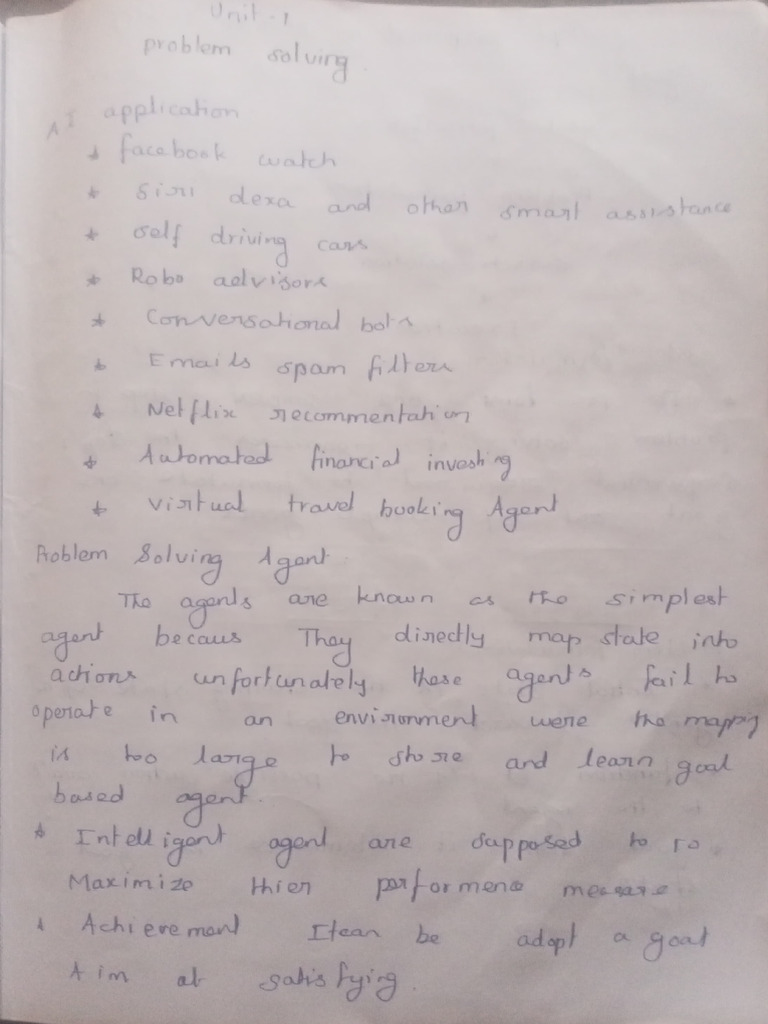 Unit - 1
problem solving.
AI application
* facebook watch
* Siri dexa and other smart assistance
* self driving cars
* Robo advisors
* Conversational bots
* Emails spam filters
* Netflix recommentation
* Automated financial investing
* virtual travel booking Agent
Problem Solving Agent
The agents are known as the simplest
agent becaus They directly map state into
actions unfortunately these agents fail to
operate in an environment were the mapping
is too large to store and learn goal
based agent.
* Intelligent agent are supposed to to
Maximize thier performence measure
* Achievement Itcan be adopt a goal
Aim at satisfying.